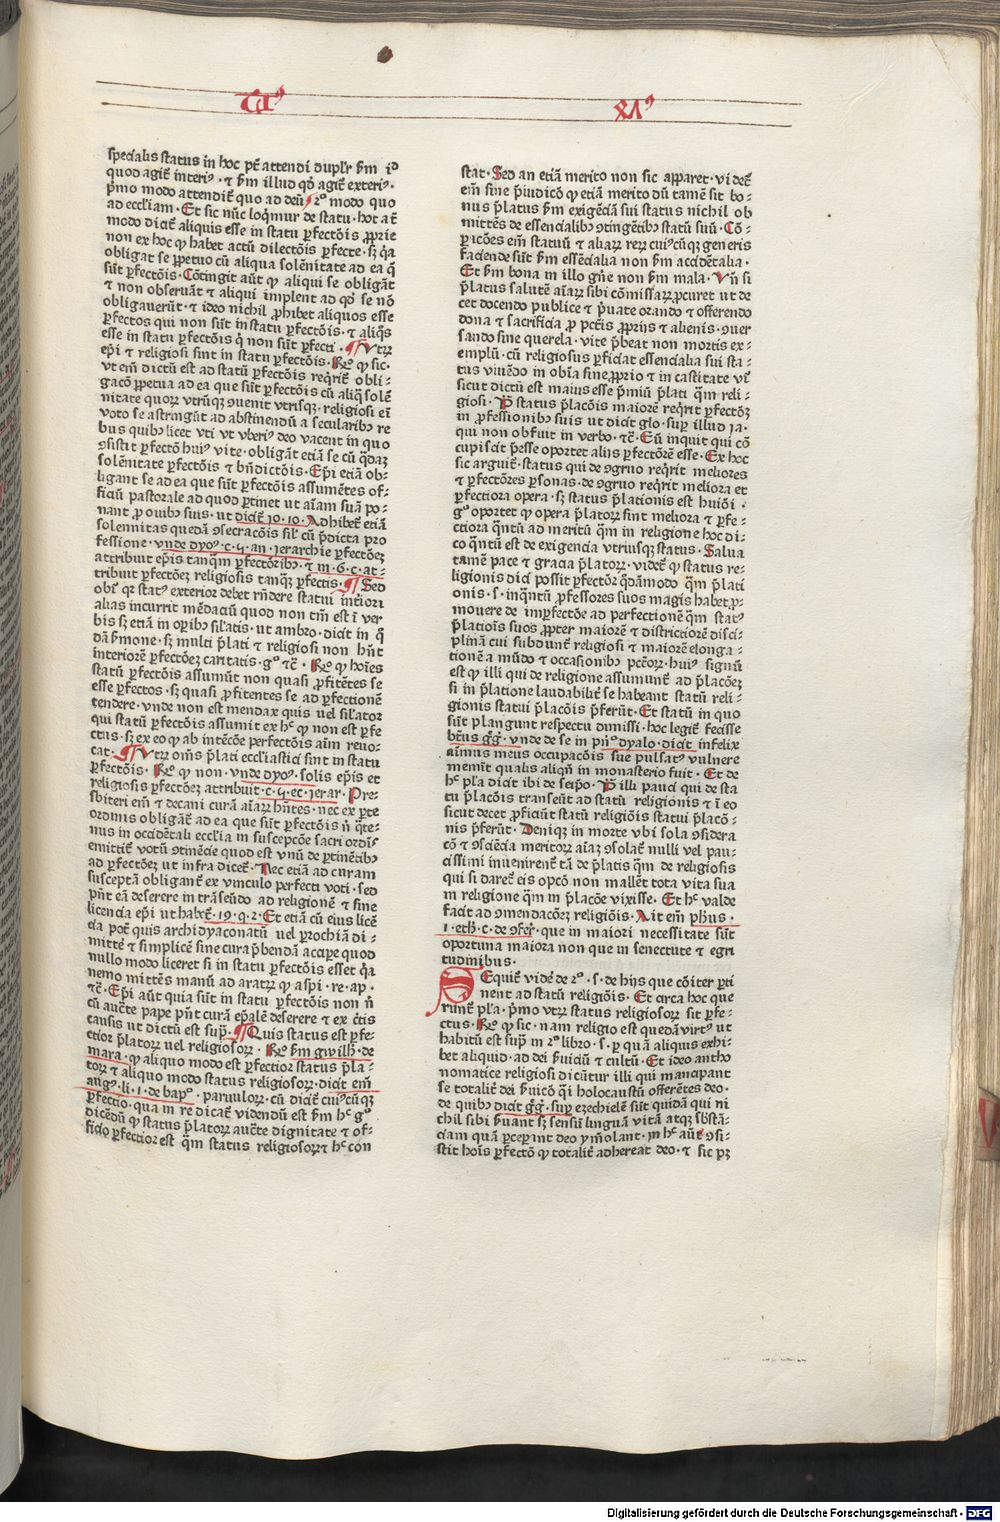 specialis status in hoc pt̃ attendi duplr̃ ẜm id
quod agit̃ interiꝰ · ⁊ ẜm illud qd̃ agit̃ exteriꝰ ·
p̃mo modo attendit̃ quo ad deũ / 2º modo quo
ad eccl̃iam · Et sic nũc loq̃mur de statu · hoc at̃
modo dicit̃ aliquis esse in statu ꝑfectõis ꝓprie
non ex hoc ꝙ habet actũ dilectõis ꝑfecte · sꝫ q̃a
obligat se ꝑpetuo cũ aliqua solẽnitate ad ea q̃
sũt ꝑfectõis · Cõtingit aũt ꝙ aliqui se obligãt
⁊ non obseruãt ⁊ aliqui implent ad qd̃ se nõ
obligauerũt · ⁊ ideo nichil ꝓhibet aliquos esse
ꝑfectos qui non sũt in statu ꝑfectõis · ⁊ aliq̃s
esse in statu ꝑfectõis q̃ non sũt ꝑfecti · ¶ Vtꝝ
ep̃i ⁊ religiosi sint in statu ꝑfectõis · Rº ꝙ sic ·
vt em̃ dictũ est ad statũ ꝑfectõis req̃rit̃ obli-
gacõ ꝑpetua ad ea que sũt ꝑfectõis cũ aliq̃ solẽ
nitate quoꝝ vtrũqꝫ ꝯuenit vtrisqꝫ · religiosi em̃
voto se astringũt ad abstinendũ a secularibꝫ re
bus quibꝫ licet vti vt vberiꝰ deo vacent in quo
ꝯsistit ꝑfectõ huiꝰ vite · obligãt etiã se cũ q̃daꝫ
solẽnitate ꝑfectõis ⁊ bñdictõis · Ep̃i etiã ob-
ligant se ad ea que sũt ꝑfectõis assumẽtes of-
ficiũ pastorale ad quod ꝑtinet ut aĩam suã po-
nant ꝓ ouibꝫ suis · ut dicit̃ Jo · 10 · Adhibet̃ etiã
solennitas quedã ꝯsecracõis sil̃ cũ p̃dicta pro
fessione · vnde dyoꝰ · c · 5 · an · Jerarchie ꝑfectõeꝫ
attribuit ep̃is tanq̃m ꝑfectõribꝫ · ⁊ in · 6 · c · at-
tribuit ꝑfectõeꝫ religiosis tanq̃ꝫ ꝑfectis · ¶ Sed
obr̃ qr̃ statꝰ exterior debet rñdere statui int̃iori
alias incurrit mẽdaciũ quod non tm̃ est ĩ ver
bis sꝫ etiã in oꝑibꝫ sil̃atis · ut ambro · dicit in q̃
dã ẜmone · sꝫ multi p̃lati ⁊ religiosi non hñt
interiorẽ ꝑfectõeꝫ caritatis · gº ⁊c̃ · Rº ꝙ hoĩes
statũ ꝑfectõis assumũt non quasi ꝓfitẽtes se
esse ꝑfectos · sꝫ quasi ꝓfitentes se ad ꝑfectionẽ
tendere · vnde non est mendax quis uel sil̃ator
qui statũ ꝑfectõis assumit ex hᶜ ꝙ non est ꝑfe
ctus · sꝫ ex eo ꝙ ab intẽcõe ꝑfectõis aĩm reuo-
cat · ¶ Vtꝝ oms̃ p̃lati eccl̃iastici sint in statu
ꝑfectõis · Rº ꝙ non · vnde dyoꝰ · solis ep̃is et
religiosis ꝑfectõeꝫ attribuit · c · 5 · ec · Jerar · Pre-
sbiteri em̃ ⁊ decani curã aĩaꝝ hñtes · nec ex ꝑte
ordinis obligãt̃ ad ea que sũt ꝑfectõis ñ q̃te-
nus in occidẽtali eccl̃ia in suscepcõe sacri ordĩs
emittit̃ votũ ꝯtinẽcie quod est vnũ de ꝑtinẽtibꝫ
ad ꝑfectõeꝫ ut infra dicet̃ · Nec etiã ad curam
susceptã obligant̃ ex vinculo perfecti voti · sed
pñt eã deserere in trãseũdo ad religionẽ ⁊ sine
licencia ep̃i ut habet̃ · 19 · q · 2 · Et etiã cũ eius licẽ
cia põt quis archidyaconatũ uel ꝑrochiã di-
mittẽ ⁊ simplicẽ sine cura p̃bendã accipe quod
nullo modo liceret si in statu ꝑfectõis esset q̃a
nemo mittẽs manũ ad aratꝝ ꝙ aspi · re · ap ·
⁊c̃ · Ep̃i aũt quia sũt in statu ꝑfectõis non ñ
cũ auc̃te pape pñt curã ep̃alẽ deserere ⁊ ex c̃tis
causis ut dictũ est sup̃ · ¶ Quis status est ꝑfe-
ctior p̃latoꝝ uel religiosoꝝ · Rº ẜm gwilh̃ · de
mara · ꝙ aliquo modo est ꝑfectior status p̃la-
toꝝ ⁊ aliquo modo status religiosoꝝ · dicit em̃
augꝰ · li · 1 · de bapº · paruuloꝝ · cũ dicit̃ cuiꝰcũqꝫ
ꝑfectio · qua in re dicat̃ videndũ est ẜm hᶜ gº
dicẽdũ ꝙ status p̃latoꝝ auc̃te dignitate ⁊ of-
ficio ꝑfectior est q̃m status religiosoꝝ ⁊ hᶜ con
stat · Sed an etiã merito non sic apparet · vĩ det̃
em̃ sine p̃iudicõ ꝙ etiã merito dũ tamẽ sit bo-
nus p̃latus ẜm exigẽciã sui status nichil ob
mittẽs de essencialibꝫ ꝯtingẽtibꝫ statũ suũ · Cõ-
ꝑicões em̃ statuũ ⁊ aliaꝝ reꝝ cuiꝰcũqꝫ generis
faciende sũt ẜm essẽcialia non ẜm accidẽtalia ·
Et ẜm bona in illo gñe non ẜm mala · Vñ si
p̃latus salutẽ aĩaꝝ sibi cõmissaꝝ ꝓcuret ut de
cet docendo publice ⁊ p̃uate orando ⁊ offerendo
dona ⁊ sacrificia ꝓ pctĩs ꝓprijs ⁊ alienis · ꝯuer
sando sine querela · vite p̃beat non mortis ex-
emplũ · cũ religiosus ꝑficiat essencialia sui sta-
tus viuẽdo in obĩa sine ꝓprio ⁊ in castitate vt̃
sicut dictũ est maius esse p̃miũ p̃lati q̃m reli-
giosi · P̃ status p̃lacõis maiorẽ req̃rit ꝑfectõꝫ
in ꝓfessionibꝫ suis ut dicit glo · sup̃ illud Ja ·
qui non obfuit in verbo · ⁊c̃ · Eũ inquit qui cõ
cupiscit p̃esse oportet alijs ꝑfectõrẽ esse · Ex hoc
sic arguit̃ · status qui de ꝯgruo req̃rit meliores
⁊ ꝑfectõres ꝑsonas · de ꝯgruo req̃rit meliora et
ꝑfectiora opera · sꝫ status p̃lationis est huiõi ·
gº oportet ꝙ opera p̃latoꝝ sint meliora ⁊ ꝑfe-
ctiora q̃ntũ ad meritũ q̃m in religione hoc di-
co q̃ntũ est de exigencia vtriusqꝫ status · Salua
tamẽ pace ⁊ gracia p̃latoꝝ · videt̃ ꝙ status re-
ligionis dici possit ꝑfectõr q̃dãmodo q̃m p̃lati
onis · s · inq̃ntũ ꝓfessores suos magis habet ꝓ-
mouere de imꝑfectõe ad perfectionẽ q̃m statꝰ
p̃lationĩs suos ꝓpter maiorẽ ⁊ districtiorẽ disci-
plinã cui subdunt̃ religiosi ⁊ maiorẽ elonga-
tionẽ a mũdo ⁊ occasionibꝫ pctõꝝ · huiꝰ signũ
est ꝙ illi qui de religione assumunt̃ ad p̃lacõeꝫ
si in p̃latione laudabilit̃ se habeant statũ reli-
gionis statui p̃lacõis p̃ferũt · Et statũ in quo
sũt plangunt respectu dimissi · hoc legit̃ fecisse
btũs g̃g̃ · vnde de se in pñº dyalo · dicit infelix
aĩmus meus occupacõis sue pulsatꝰ vulnere
memĩt qualis aliqñ in monasterio fuit · Et de
hᶜ pl̃a dicit ibi de seip̃o · P̃ illi pauci qui de sta
tu p̃lacõis transeũt ad statũ religionis ⁊ ĩ eo
sicut decet ꝓficiũt statũ religiõis statui p̃lacõ-
nis p̃ferũt · Deniqꝫ in morte vbi sola ꝯsidera
cõ ⁊ ꝯsciẽcia meritoꝝ aĩaꝫ ꝯsolat̃ nulli vel pau-
cissimi inuenirent̃ tã de p̃latis q̃m de religiosis
qui si daret̃ eis opcõ non mallẽt tota vita sua
in religione q̃m in p̃lacõe vixisse · Et hᶜ valde
facit ad ꝯmendacõeꝫ religiõis · Ait em̃ ph̃us ·
1 · eth̃ · c · de ꝯfer̃ · que in maiori necessitate sũt
oportuna maiora non que in senectute ⁊ egri
tudinibus ·
SEquit̃ vidẽ de 2º · s · de hijs que cõiter ꝑti
nent ad statũ religiõis · Et circa hoc que
runt̃ pl̃a · p̃mo vtꝝ status religiosoꝝ sit ꝑfe-
ctus · Rº ꝙ sic · nam religio est quedã virtꝰ ut
habitũ est sup̃ in 2º libro · s · ꝑ quã aliquis exhi-
bet aliquid · ad dei ẜuiciũ ⁊ cultũ · Et ideo antho
nomatice religiosi dicũtur illi qui mancipant
se totalit̃ dei ẜuicõ q̃i holocaustũ offerẽtes deo ·
de quibꝫ dicit g̃g̃ · suꝑ ezechielẽ sũt quidã qui ni
chil sibi ẜuant sꝫ sensũ linguã vitã atqꝫ sb̃stã-
ciam quã ꝑceperint deo ymolant · In hᶜ aũt ꝯsi-
stit hoĩs ꝑfectõ ꝙ totalit̃ adhereat deo · ⁊ sic pꝫ